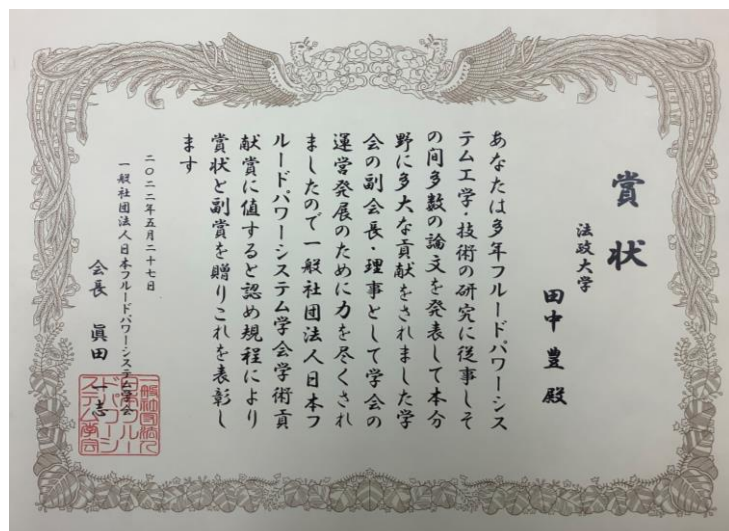 賞状
法政大学
田中 豊 殿
あなたは多年フルードパワーシス
テム工学・技術の研究に従事しそ
の間多数の論文を発表して本分
野に多大な貢献をされました学
会の副会長・理事として学会の
運営発展のために力を尽くされ
ましたので一般社団法人日本フ
ルードパワーシステム学会学術貢
献賞に値すると認め規程により
賞状と副賞を贈りこれを表彰し
ます
二〇二二年五月二十七日
一般社団法人日本フルードパワーシステム学会
会長 眞田 一志